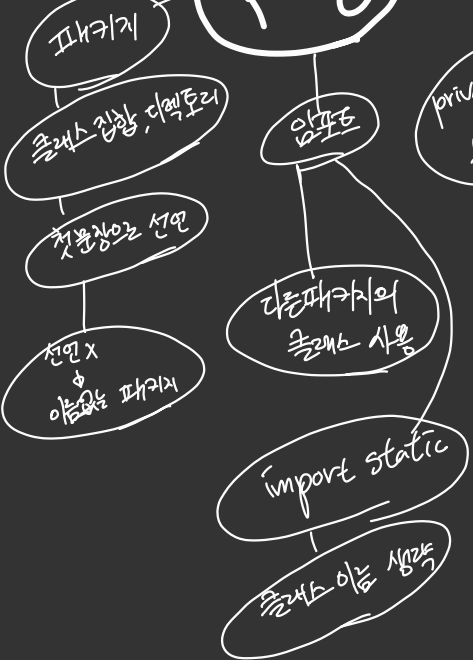 패키지
클래스 집합, 디렉토리
첫문장으로 선언
선언 X
이름없는 패키지
임포트
다른패키지의
클래스 사용
import static
클래스 이름 생략